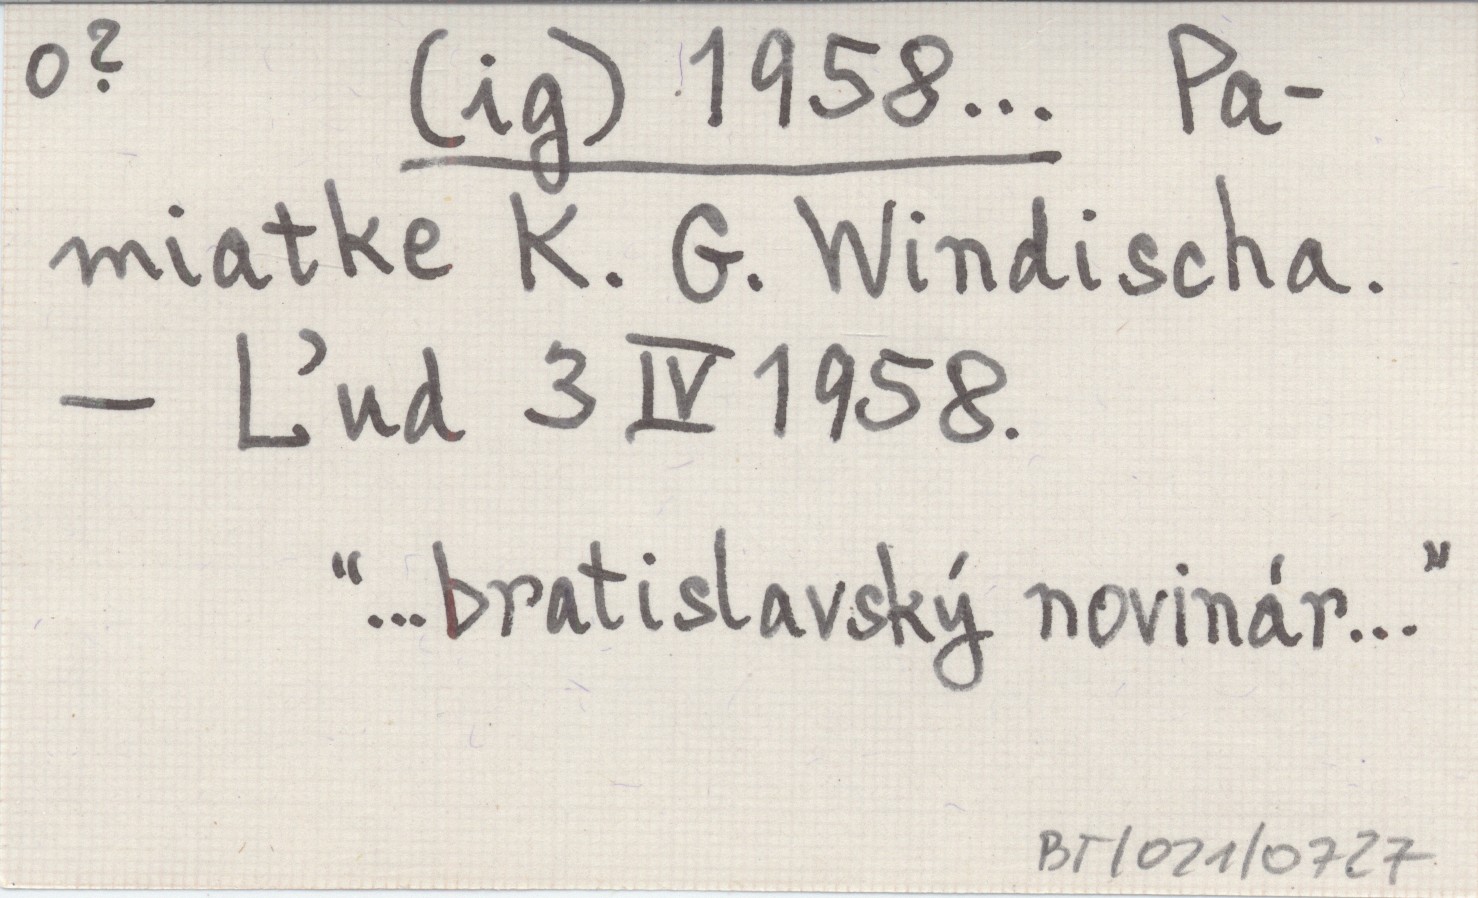 o? (ig) 1958... Pa-
miatke K. G. Windischa.
— Ľud 3 IV 1958.
“...bratislavský novinár...”
BT/021/0727